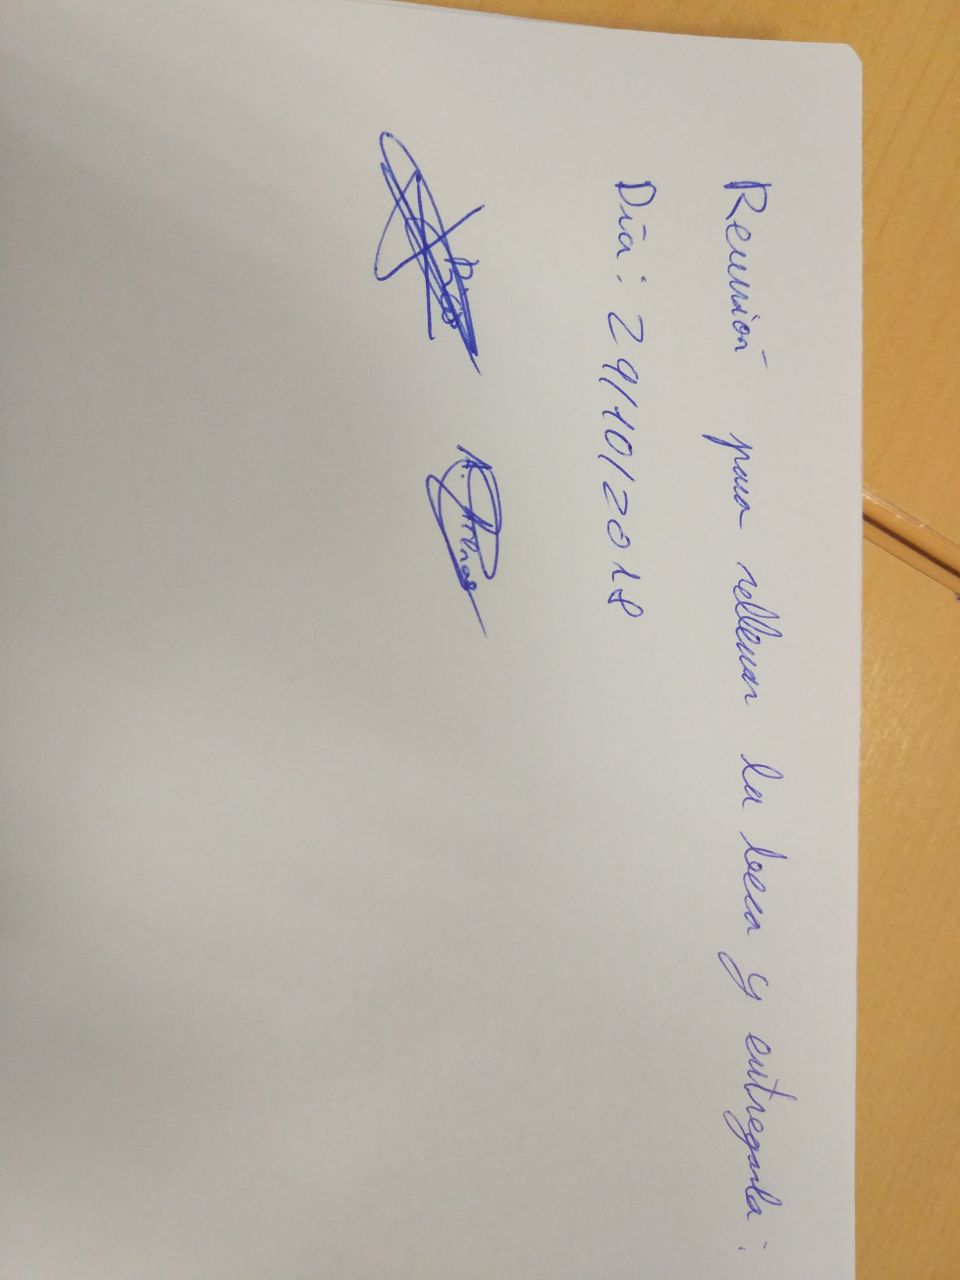 Reunión para rellenar la beca y entregarla:
Día: 29/10/2018